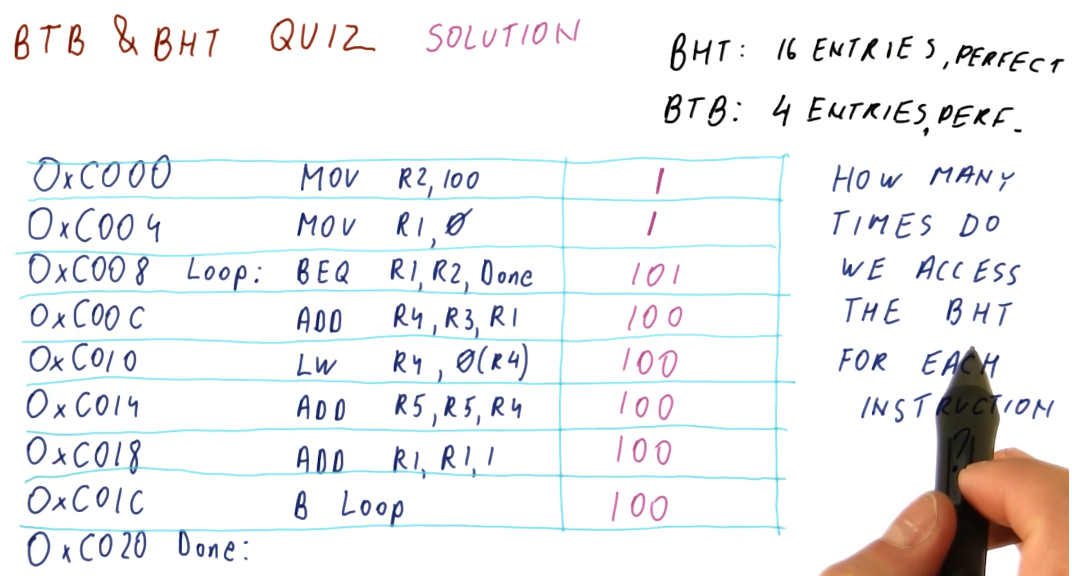 BTB & BHT QUIZ SOLUTION
BHT: 16 ENTRIES, PERFECT
BTB: 4 ENTRIES, PERF.
0xC000 MOV R2, 100 1
0xC004 MOV R1, 0 1
0xC008 Loop: BEQ R1, R2, Done 101
0xC00C ADD R4, R3, R1 100
0xC010 LW R4, 0(R4) 100
0xC014 ADD R5, R5, R4 100
0xC018 ADD R1, R1, 1 100
0xC01C B Loop 100
0xC020 Done:
HOW MANY
TIMES DO
WE ACCESS
THE BHT
FOR EACH
INSTRUCTION
?